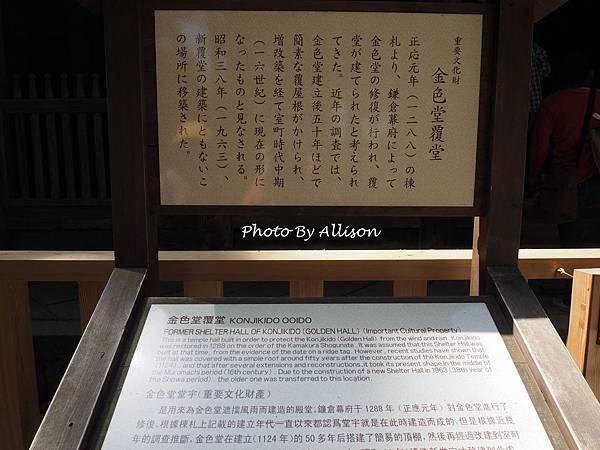 重要文化財
金色堂覆堂
正応元年（一二八八）の棟
札より、鎌倉幕府によって
金色堂の修復が行われ、覆
堂が建てられたと考えられ
てきた。近年の調査では、
金色堂建立後五十年ほどで
簡素な覆屋根がかけられ、
増改築を経て室町時代中期
（一六世紀）に現在の形に
なったものと見なされる。
昭和三八年（一九六三）、
新覆堂の建築にともないこ
の場所に移築された。
Photo By Allison
金色堂覆堂 KONJIKIDO OOIDO
FORMER SHELTER HALL OF KONJIKIDO (GOLDEN HALL) (Important Cultural Property)
This is a temple hall built in order to protect the Konjikido (Golden Hall) from the wind and rain. Konjikido
was restored in 1288 on the order of the Kamakura Shogunate. It was assumed that this Shelter Hall was
built at that time, from the evidence of the date on a ridge tag. However, recent studies have shown that
the hall was covered with a simple roof around fifty years after the construction of the Konjikido Temple
(1124), and that after several extensions and reconstructions, it took its present shape in the middle of
the Muromachi period (16th century). Due to the construction of a new Shelter Hall in 1963 (38th year of
the Showa period), the older one was transferred to this location.
金色堂堂宇（重要文化財產）
是用來為金色堂遮擋風雨而建造的殿堂。鎌倉幕府于 1288 年（正應元年）對金色堂進行了
修復。根據棟札上記載的建立年代一直以來都認爲堂宇就是在此時建造而成的，但是根據近幾
年的調查推斷，金色堂在建立（1124 年）的 50 多年后搭建了簡易的頂棚，然後再經過改建到室町